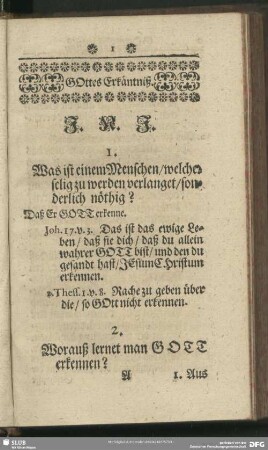 1
GOttes Erkäntniß.
J. N. J.
1.
Was ist einem Menschen/welcher
selig zu werden verlanget/son-
derlich nöthig?
Daß Er GOTT erkenne.
Joh. 17. v. 3. Das ist das ewige Le-
ben/ daß sie dich/ daß du allein
wahrer GOTT bist/ und den du
gesandt hast/ JEsum Christum
erkennen.
2. Thess. 1. v. 8. Rache zu geben über
die/ so GOtt nicht erkennen.
2.
Worauß lernet man GOTT
erkennen?
A 1. Aus
SLUB